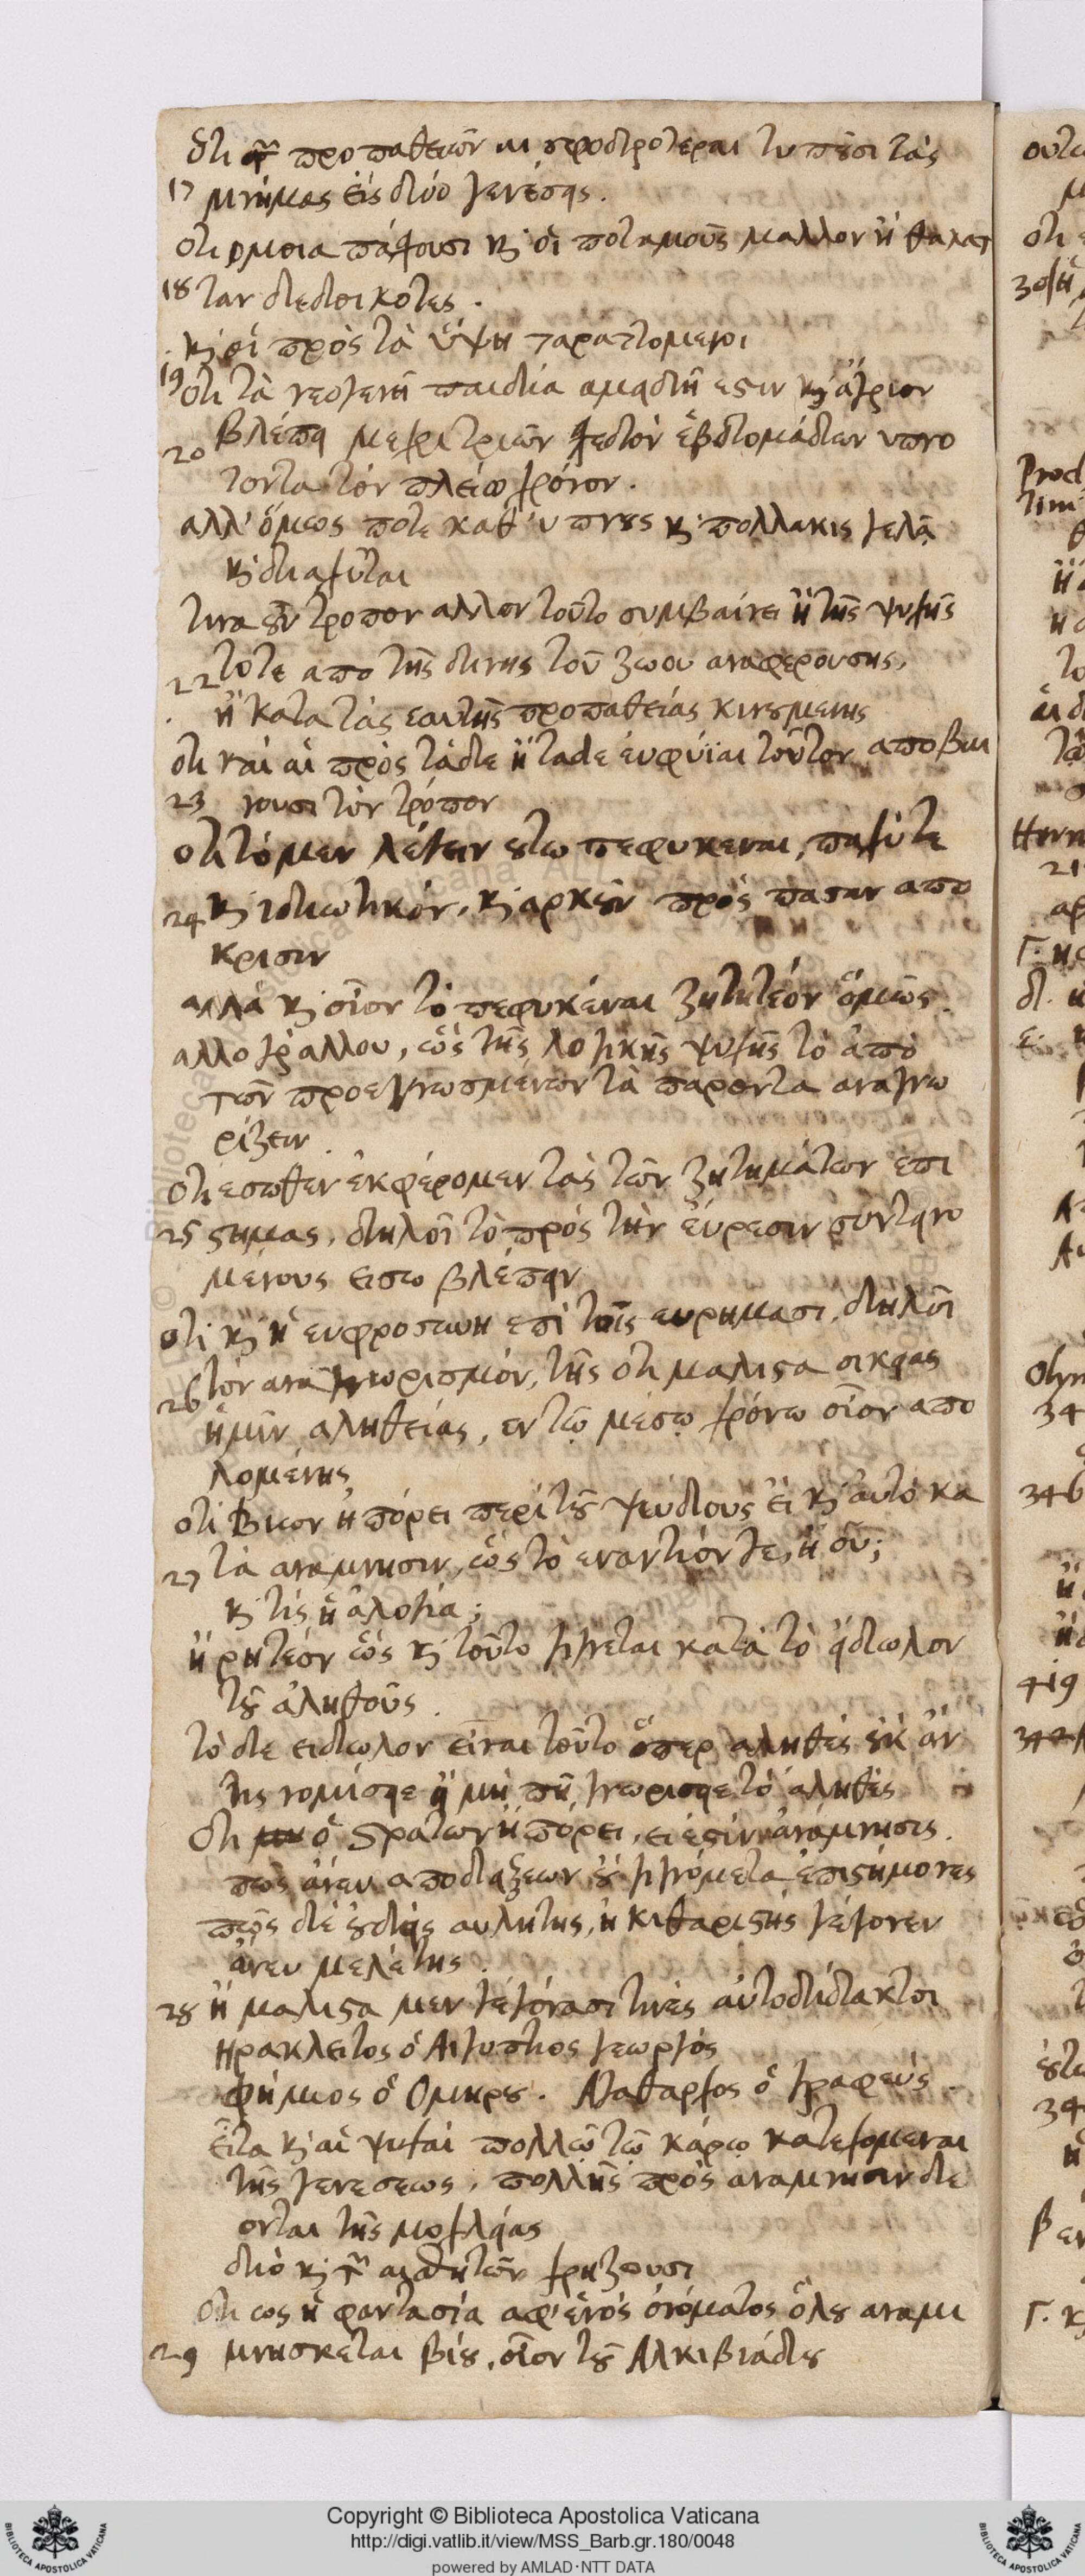 ὅτι τῶν προπαθειῶν αι σφοδροτεραι τυπῦσι τὰς
17 μνήμας εἰς δύο γενέσεις.
οτι ομοια πάχουσι κ οἱ ποταμοὺς μαλλον ἢ θαλατ
18 ταν δεδοικοτες.
κ οἱ πρὸς τὰ ὕψη ταραττομενοι
19 ὅτι τὰ νεογενῆ παιδία αμειδῆ εστιν κ ἄγριον
βλέπει μεχρι τριῶν σχεδὸν ἑβδομάδων υπνο
20 τοντα τὸν πλείω χρόνον.
αλλ' ὅμως ποτε καθ' υπνους κ πολλακις γελᾷ
κ διαχεῖται
τινα οὖν τροπον αλλον τοῦτο συμβαίνει ἢ τῆς ψυχῆς
22 τοτε απο τῆς δινης τοῦ ζωου αναφερουσης,
ἢ κατα τὰς εαυτῆς προπαθείας κινουμενης
ὅτι καὶ αἱ πρὸς τάδε ἢ ταδε ευφυΐαι τοῦτον αποβαι
23 νουσι τὸν τρόπον
οτι τὸ μεν λέγειν ουτω πεφυκεναι, παχύ τε
24 κ ιδιωτικόν, κ αρκοῦν πρὸς πασαν απο
κρισιν
αλλὰ κ οἷον τὸ πεφυκέναι ζητητέον ὅμως.
αλλο γὰρ αλλου, ὡς τῆς λογικῆς ψυχῆς τὸ ἀπὸ
τῶν προεγνωσμένων τὰ παροντα αναγνω
ρίζειν.
ὅτι εσωθεν ἐκφέρομεν τας τῶν ζητημάτων ἐπι
25 στημας, δηλοῖ τὸ πρὸς τὴν εύρεσιν συντεινο
μένους εισω βλέπειν
οτι κ ἡ ευφροσυνη επὶ τοῖς ευρημασι, δηλοῖ
26 τὸν αναγνωρισμόν, τῆς ὅτι μαλιστα οικειας
ἡμῖν αληθείας, εν τῷ μέσῳ χρόνω οἷον απο
λομένης
οτι Βιων ἠπόρει περὶ τοῦ ψεύδους εἰ κ αυτὸ κα
27 τὰ αναμνησιν, ὡς τὸ εναντίόν γε, ἢ οὔ;
κ τίς ἡ ἀλογία;
ἢ ρητέον ὡς κ τοῦτο γίγνεται κατὰ τὸ εἴδωλον
τοῦ ἀληθοῦς.
τὸ δε ειδωλον εἶναι τοῦτο ὅπερ αληθὲς οὐκ ἄν
τις νομίσειε εἰ μή πῃ γνωρισειε τὸ ἀληθὲς
ὅτι ὁ Στρατων ἠπόρει, ει ἐστὶν ἀνάμνησις.
πῶς ἄνευ αποδειξεων οὐ γιγνόμεθα ἐπιστήμονες
πῶς δὲ οὐδεὶς αυλητης, ἢ κιθαριστὴς γέγονεν
ἄνευ μελέτης.
28 ἢ μαλιστα μεν γεγόνασι τινὲς αὐτοδίδακτοι
Ηρακλειτος ὁ Αιγυπτιος γεωργός
Φήμιος ὁ Ομηρου. Αγαθαρχος ὁ γραφεύς.
Εἶτα κ αἱ ψυχαὶ πολλῷ τῷ κάρῳ κατεχομεναι
τῆς γενεσεως, πολλῆς πρὸς αναμνησιν δε
ονται τῆς μοχλείας
διὸ κ τῶν αισθητῶν χρηζουσι
ὅτι ως ἡ φαντασία αφ' ἑνὸς ονόματος ὅλου αναμι
29 μνησκεται βίου, οἷον τοῦ Αλκιβιάδου
Copyright © Biblioteca Apostolica Vaticana
http://digi.vatlib.it/view/MSS_Barb.gr.180/0048
powered by AMLAD·NTT DATA